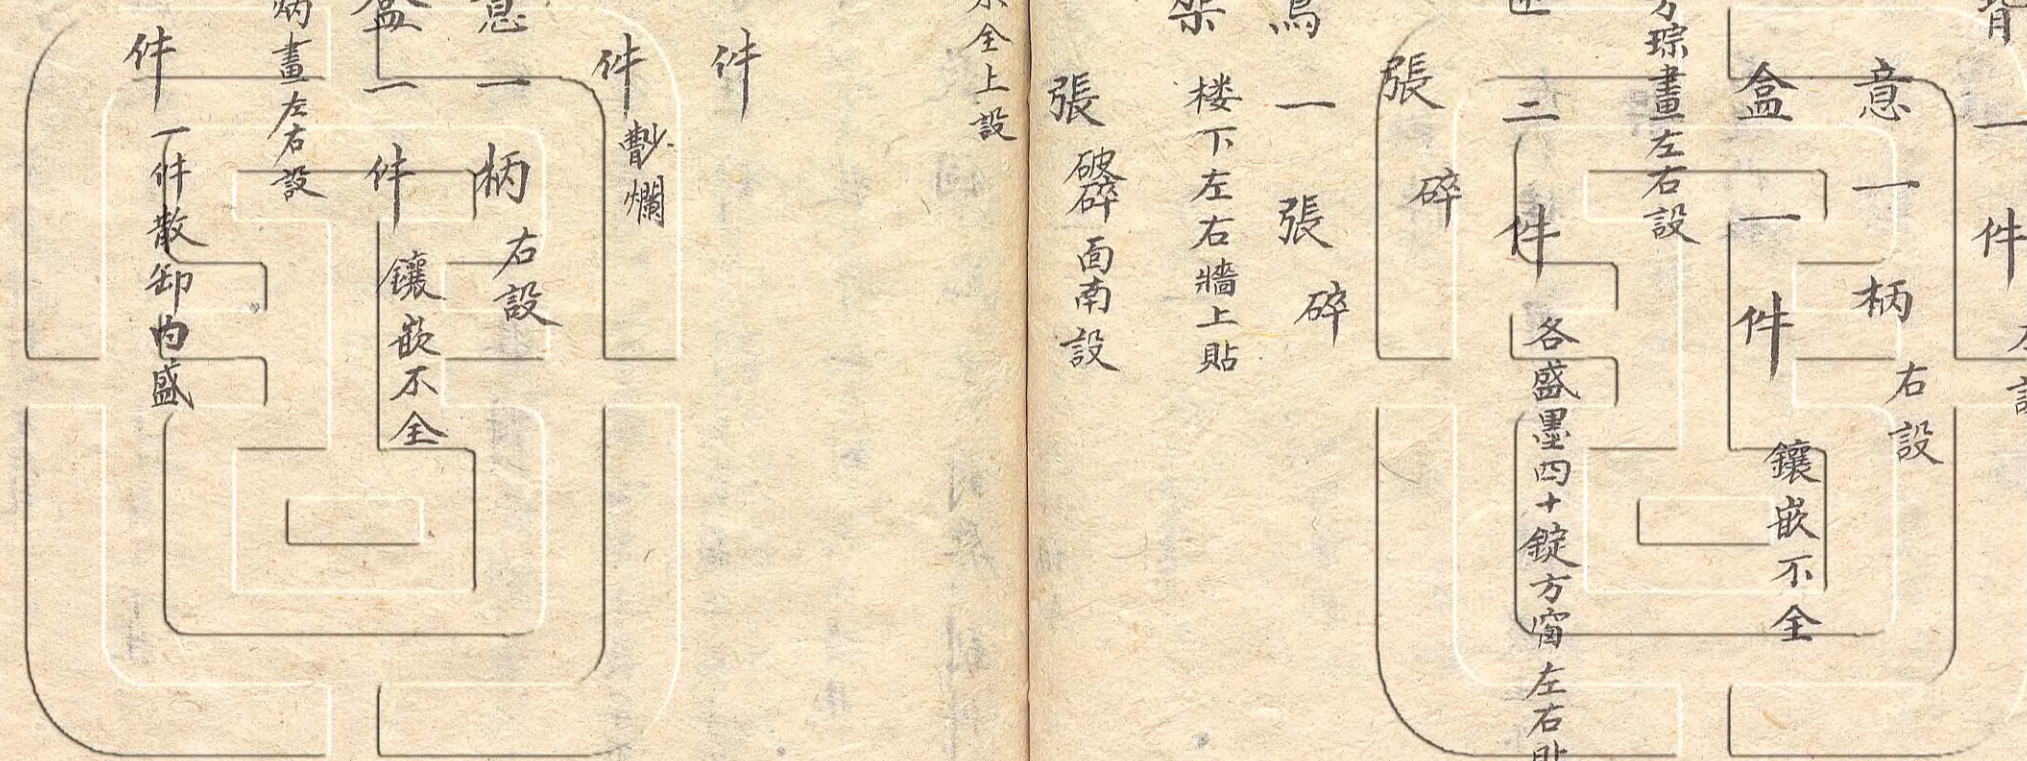 一件左設
意一柄右設
盒一件鑲嵌不全
方琮畫左右設
二件各盛墨四十錠方窗左右貼
張碎
一張碎
架楼下左右牆上貼
張破碎面南設
不全上設
件
件爛
意一柄右設
盒一件鑲嵌不全
炳畫左右設
件一件散卸内盛